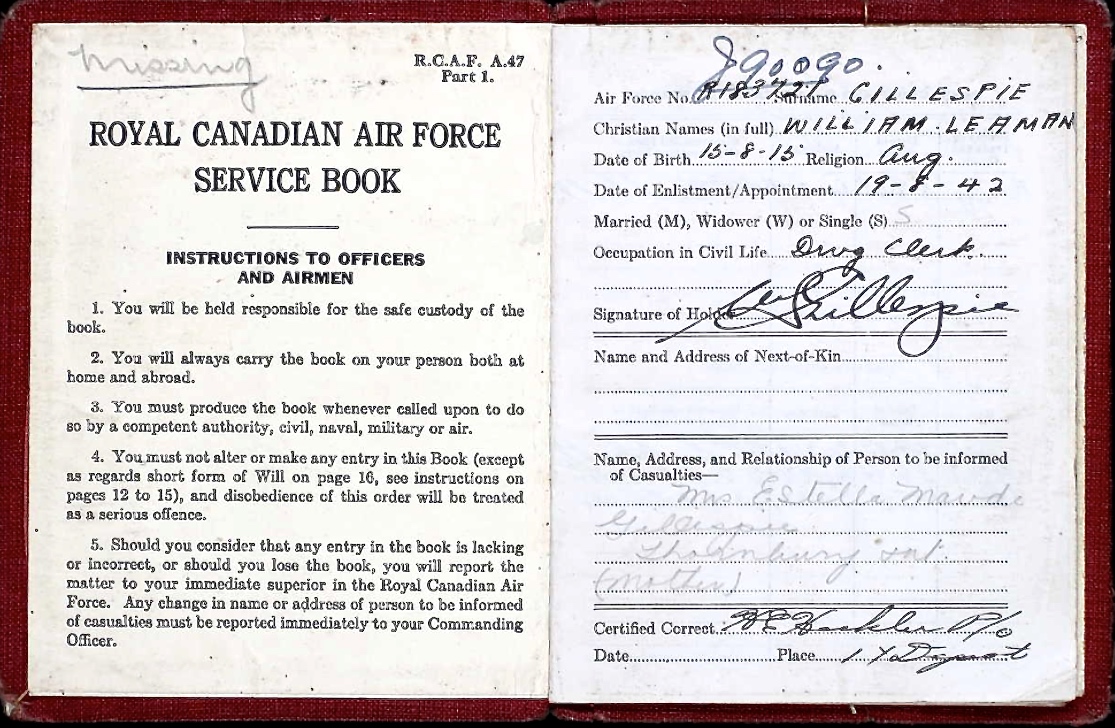 Missing
R.C.A.F. A.47
Part 1.
ROYAL CANADIAN AIR FORCE
SERVICE BOOK
INSTRUCTIONS TO OFFICERS
AND AIRMEN
1. You will be held responsible for the safe custody of the
book.
2. You will always carry the book on your person both at
home and abroad.
3. You must produce the book whenever called upon to do
so by a competent authority, civil, naval, military or air.
4. You must not alter or make any entry in this Book (except
as regards short form of Will on page 16, see instructions on
pages 12 to 15), and disobedience of this order will be treated
as a serious offence.
5. Should you consider that any entry in the book is lacking
or incorrect, or should you lose the book, you will report the
matter to your immediate superior in the Royal Canadian Air
Force. Any change in name or address of person to be informed
of casualties must be reported immediately to your Commanding
Officer.
J90090.
Air Force No. R183727 Surname GILLESPIE
Christian Names (in full) WILLIAM LEAMAN
Date of Birth 15-8-15 Religion Ang.
Date of Enlistment/Appointment 19-8-42
Married (M), Widower (W) or Single (S) S
Occupation in Civil Life Drug Clerk.
Signature of Holder WLGillespie
Name and Address of Next-of-Kin
Name, Address, and Relationship of Person to be informed
of Casualties—
Mrs Estella Maude
Gillespie
Thornbury Ont
(Mother)
Certified Correct P/O
Date Place 1 Y Depot